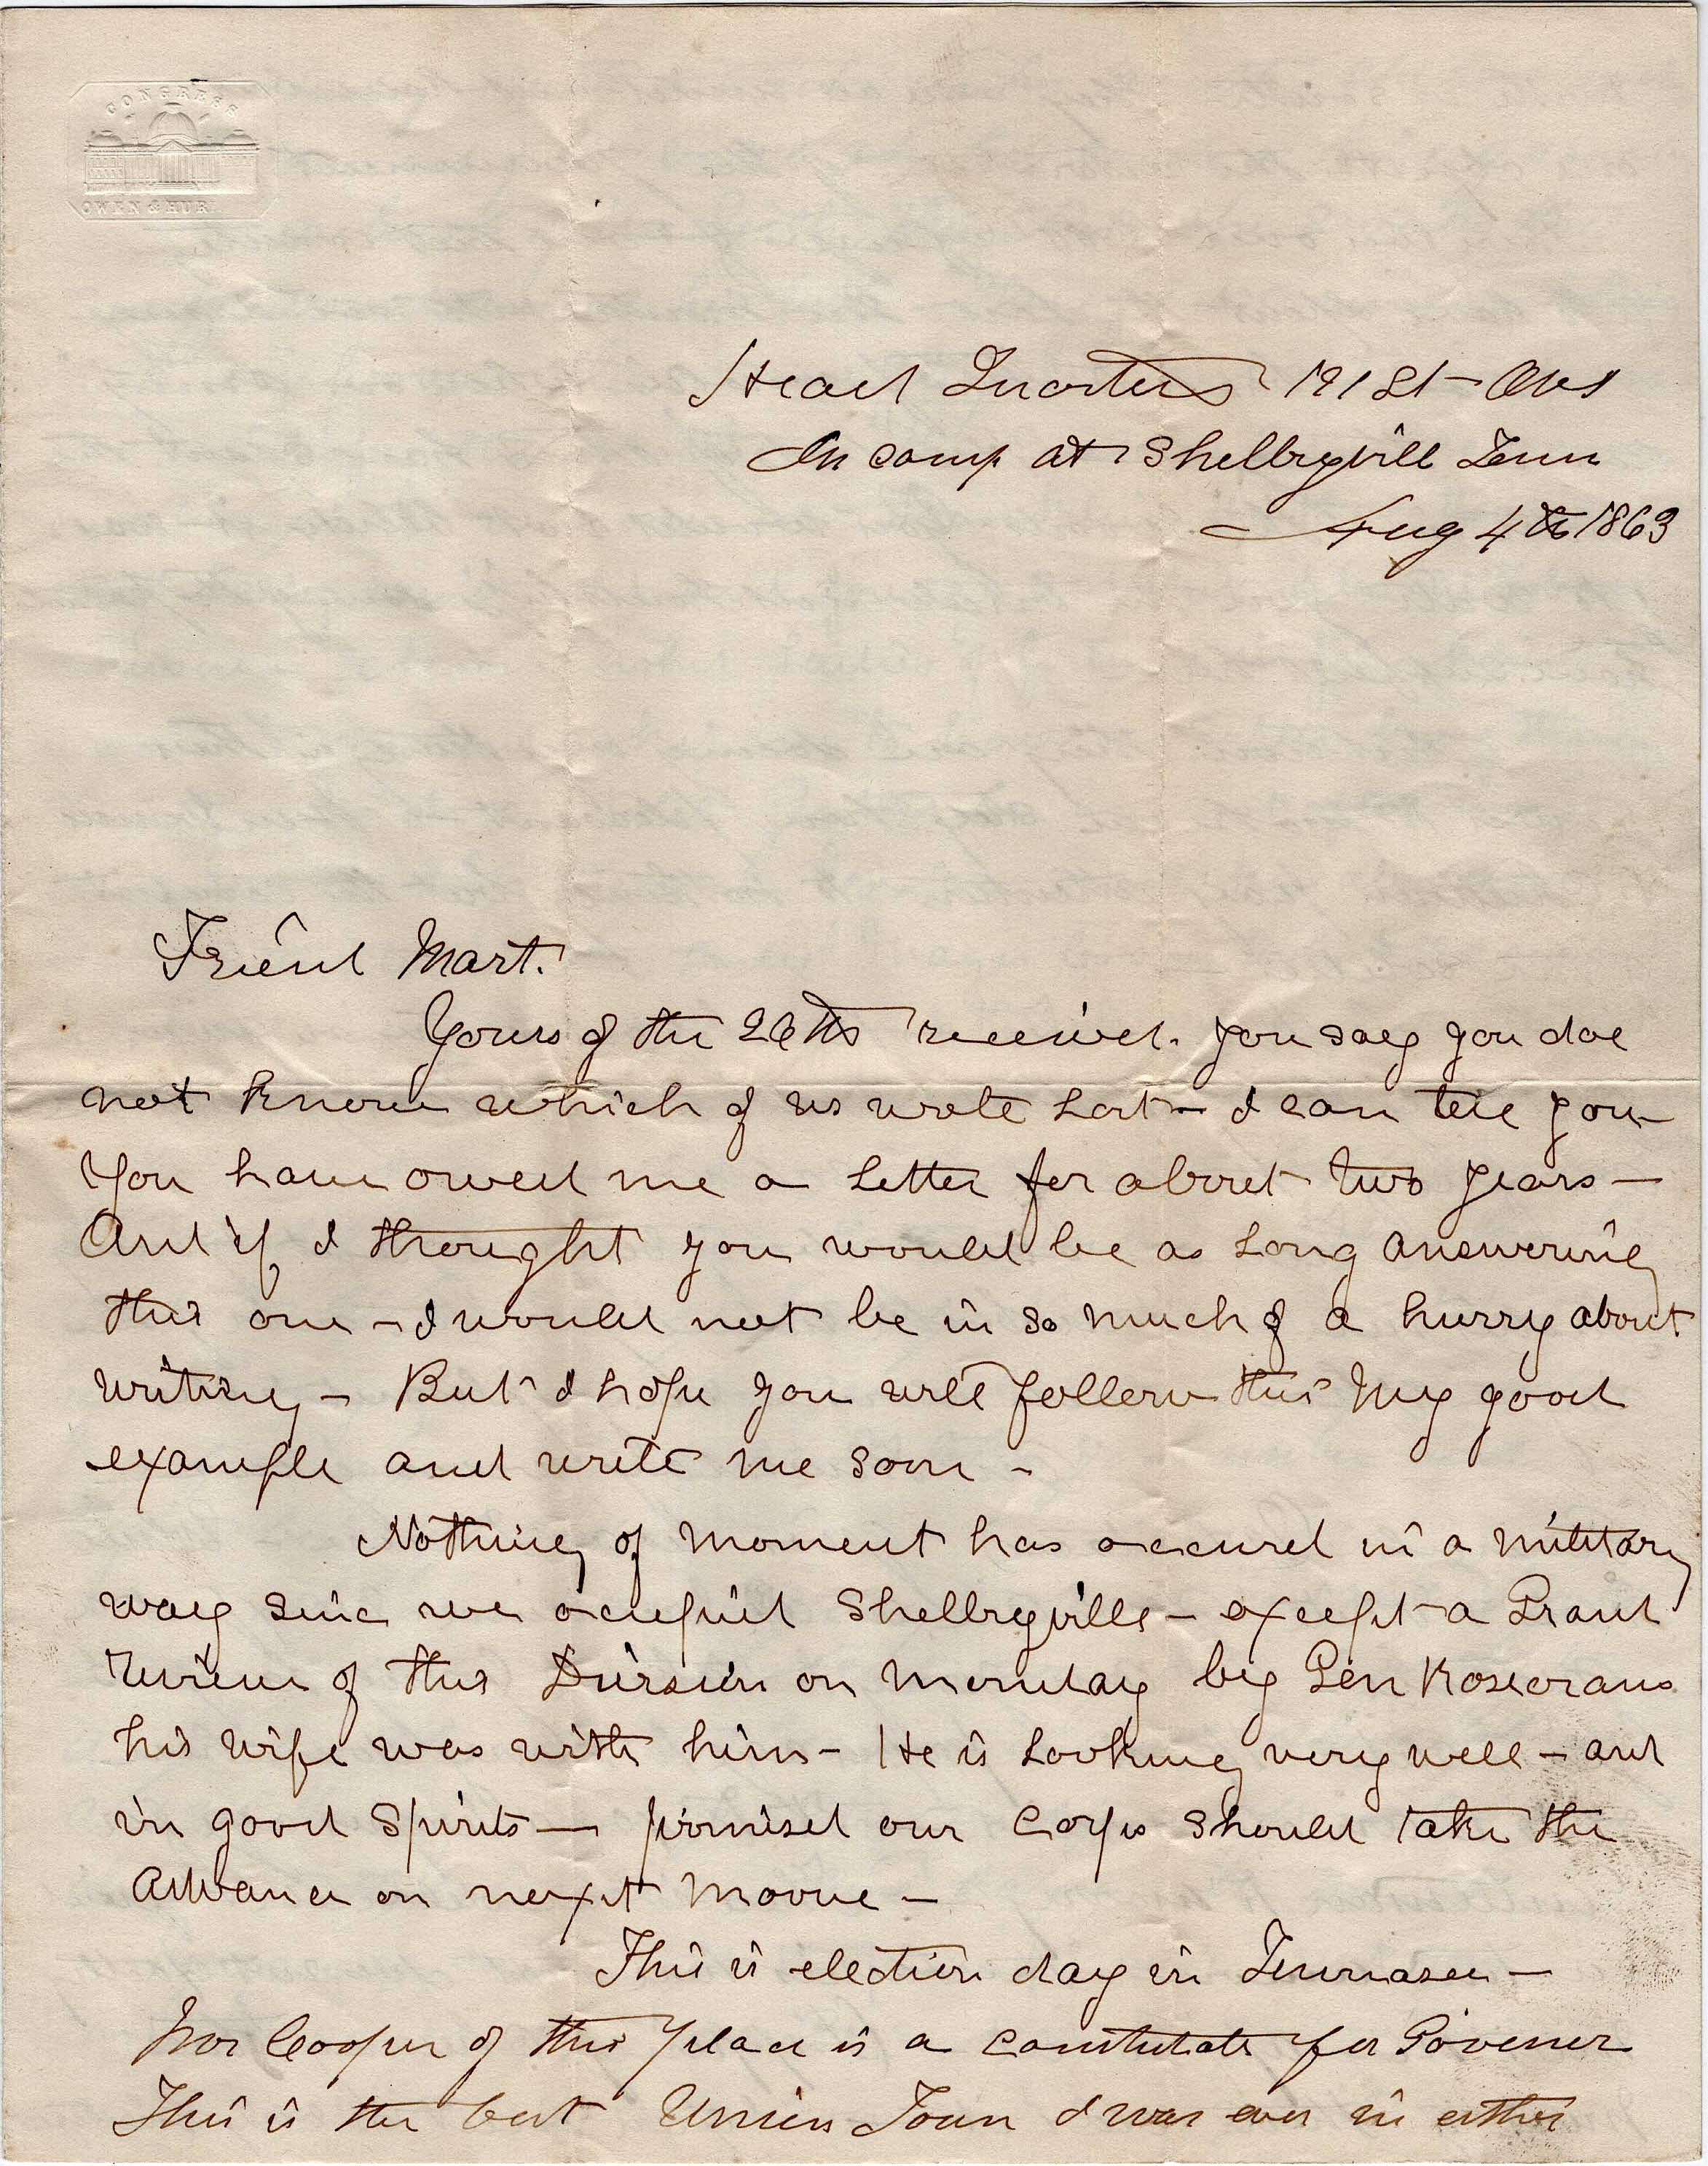 CONGRESS
OWEN & HUR
Head Quarters 121st Ohs
In camp at Shellbyvill Tenn
Aug 4th 1863
Friend Mart.
Yours of the 26th received. you say you doe
not know which of us wrote Last I can tell you
You have owed me a Letter for about two years —
And if I thought you would be as Long answering
this one — I would not be in so much of a hurry about
writing — But I hope you will follow this my good
example and write me soon —
Nothing of moment has occured in a military
way since we occupied Shellbyville — except a Grand
review of this Division on Monday by Gen Rosecrans
his wife was with him — He is Looking very well — and
in good spirits — promised our Corps should take the
Advance on next moove —
This is election day in Tennasee —
Cooper of this place is a for Govener
This is the best Union Town I was ever in either